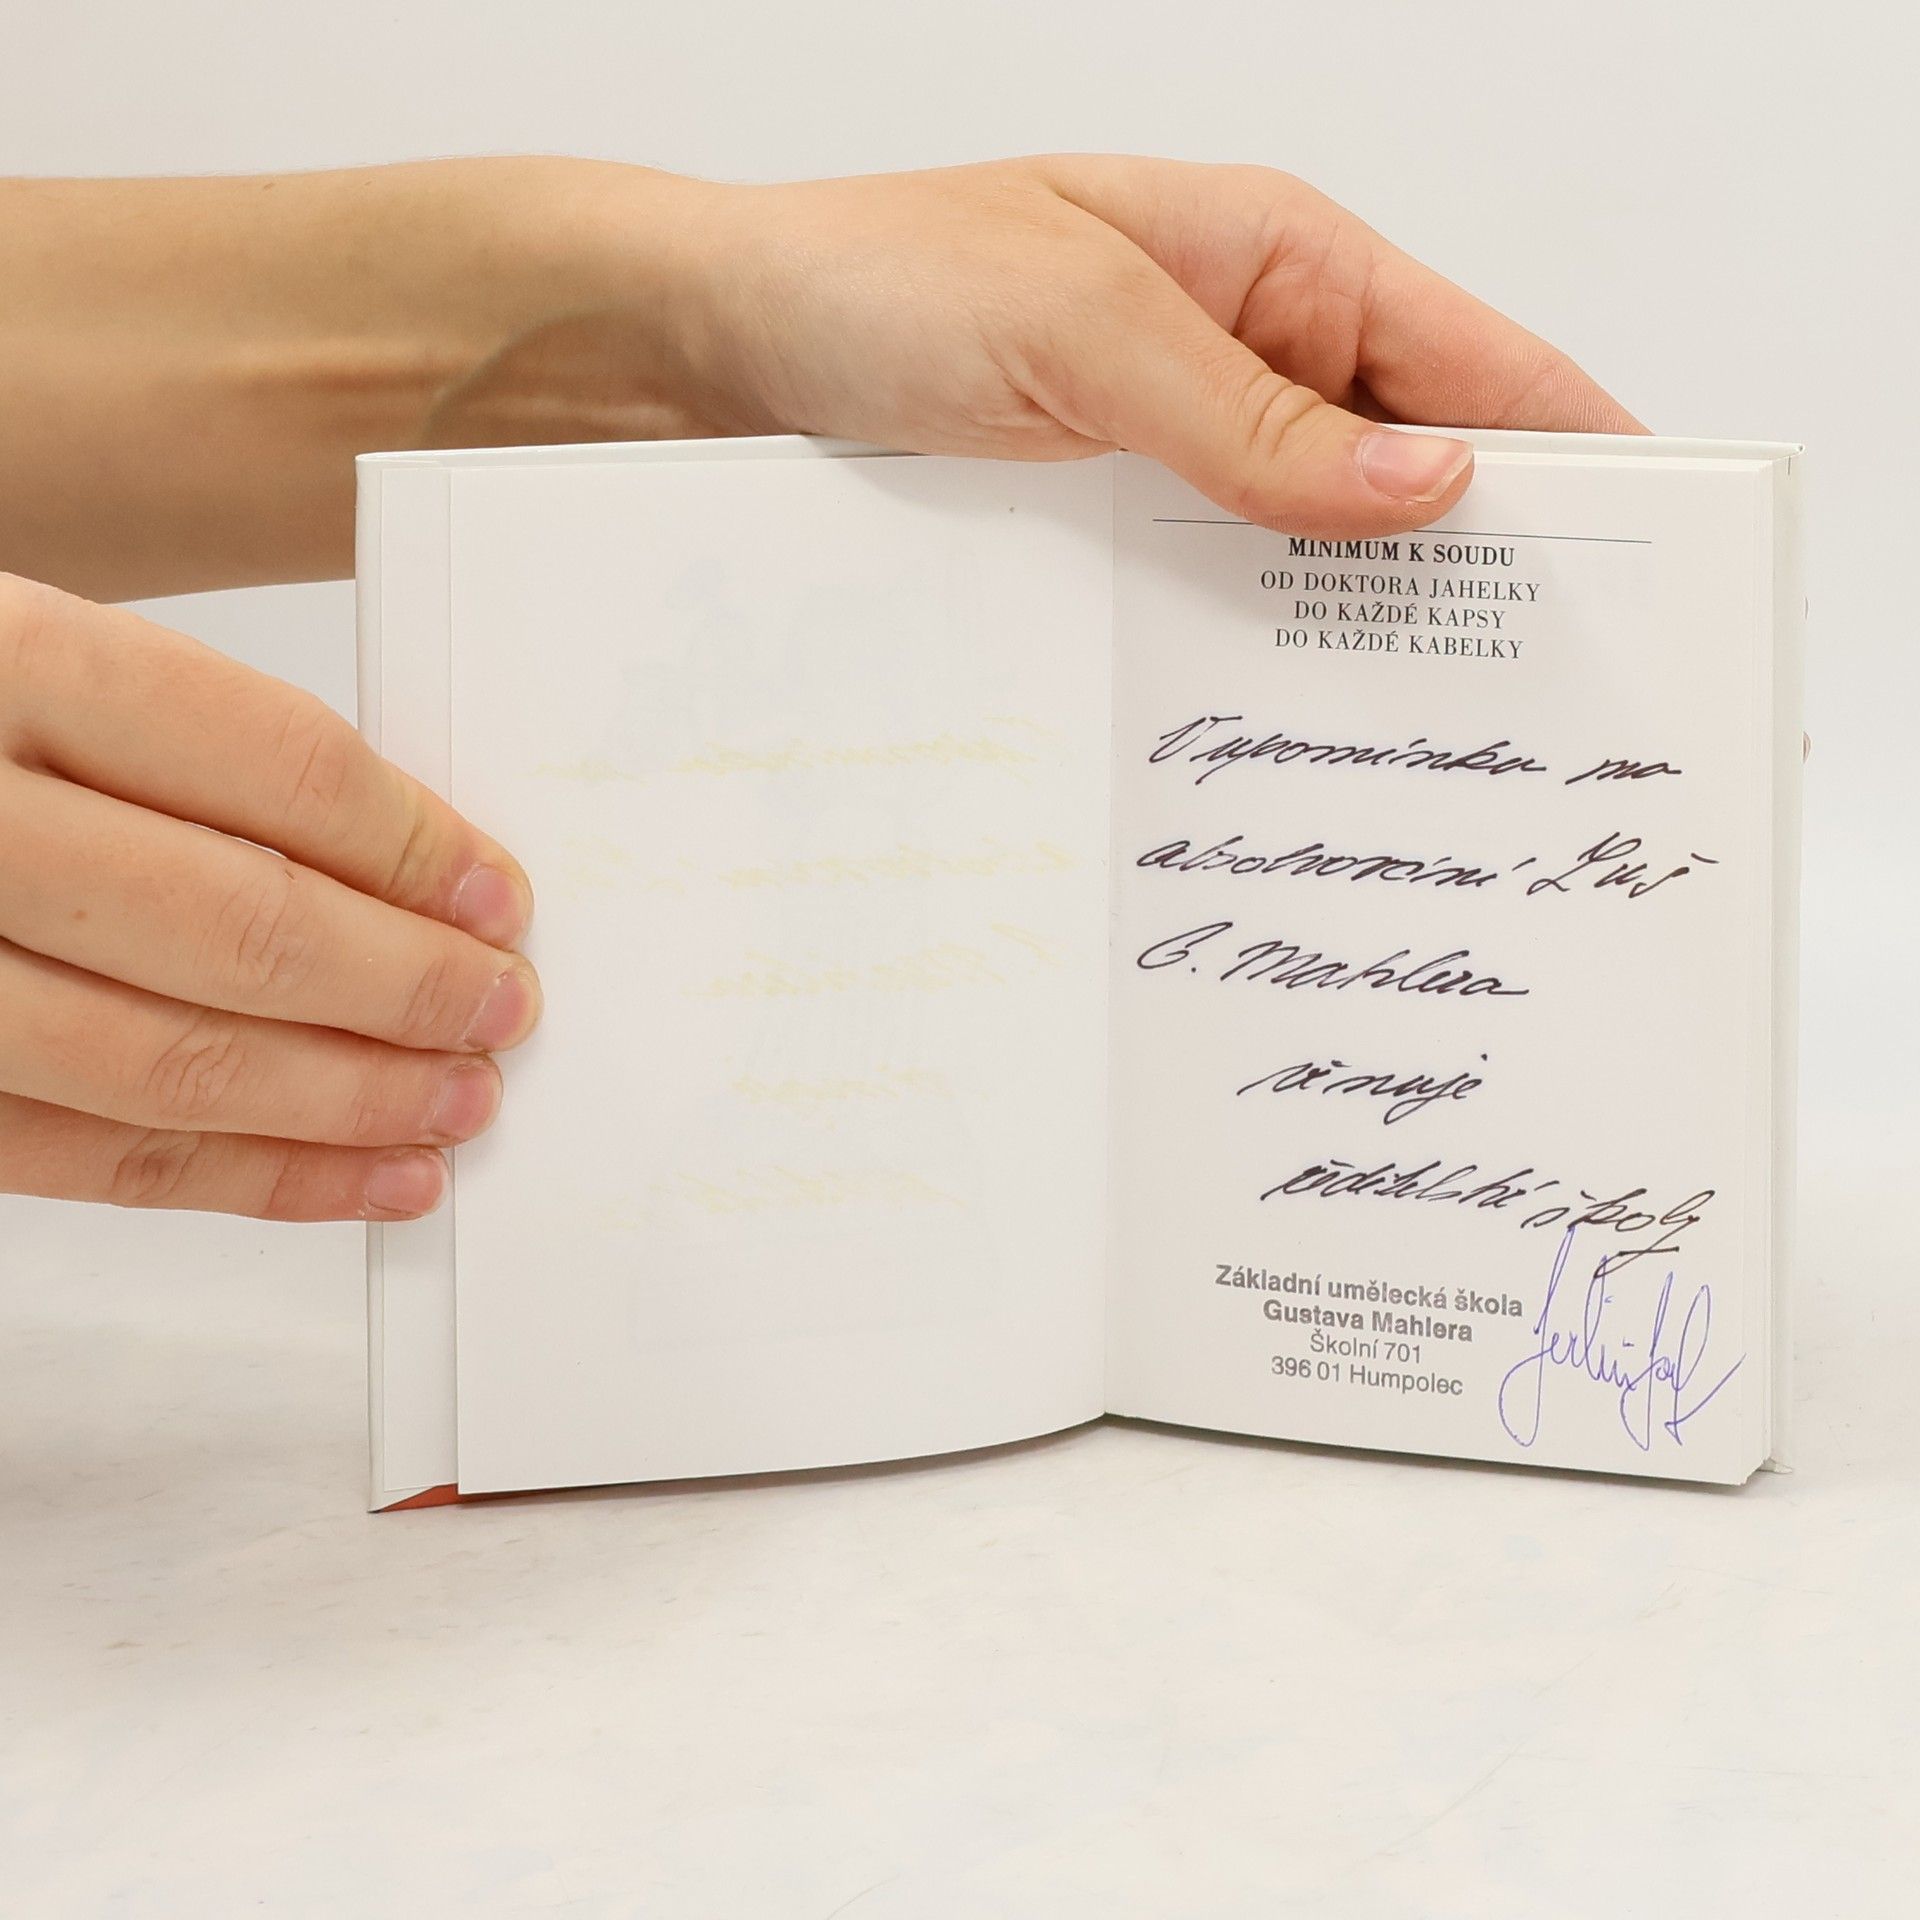 MINIMUM K SOUDU
OD DOKTORA JAHELKY
DO KAŽDÉ KAPSY
DO KAŽDÉ KABELKY
V upomínku na
absolvování Zuš
G. Mahlera
věnuje
ředitelství školy
Základní umělecká škola
Gustava Mahlera
Školní 701
396 01 Humpolec